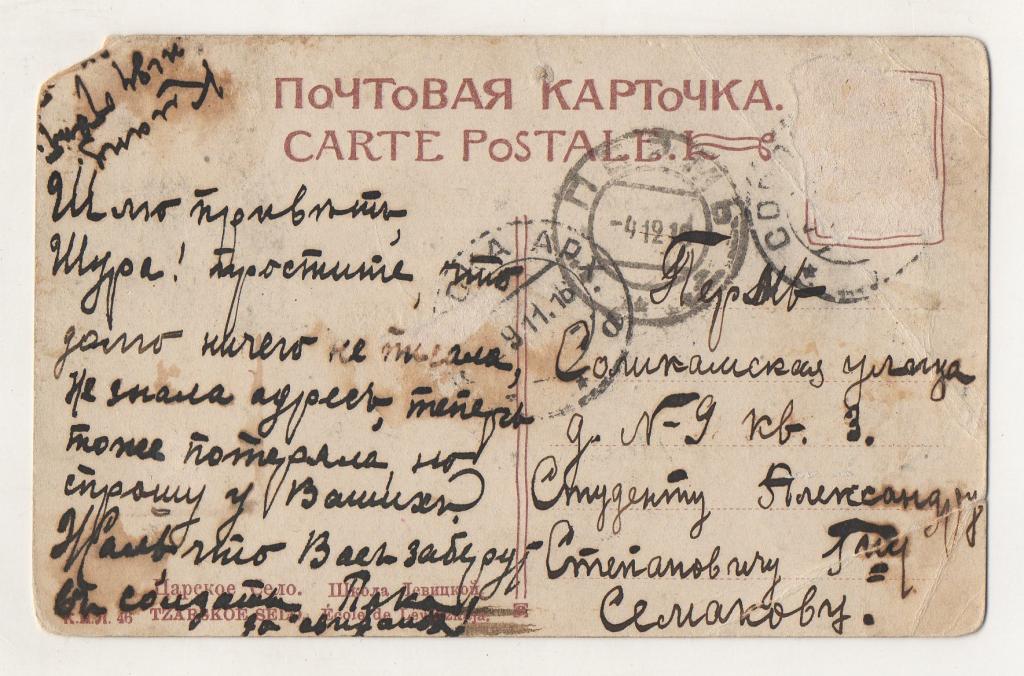 ПОЧТОВАЯ КАРТОЧКА.
CARTE POSTALE.
Шлю привѣтъ,
Шура! Простите, что
долго ничего не писала,
не знала адресъ, теперь
тоже потеряла, но
спрошу у Вашихъ.
Жаль что Васъ заберутъ
въ солдаты.
до свиданья
ПЕРМЬ
-4.12.16
АРХ.
9.11.16
Пермь
Соликамская улица
д. № 9 кв. 3.
Студенту Александру
Степановичу Г-ну
Семакову.
Царское Село. Школа Левицкой.
К.И.Л. 46 TZARSKOE SELO. École de